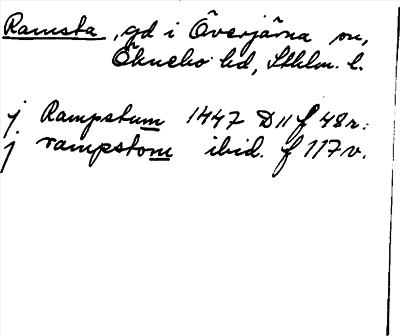 Ramsta, gd i Överjärna sn,
Öknebo hd, Sthlm. l.
j Rampstum 1447 D11 f 48r.
j rampstom ibid. f 117v.